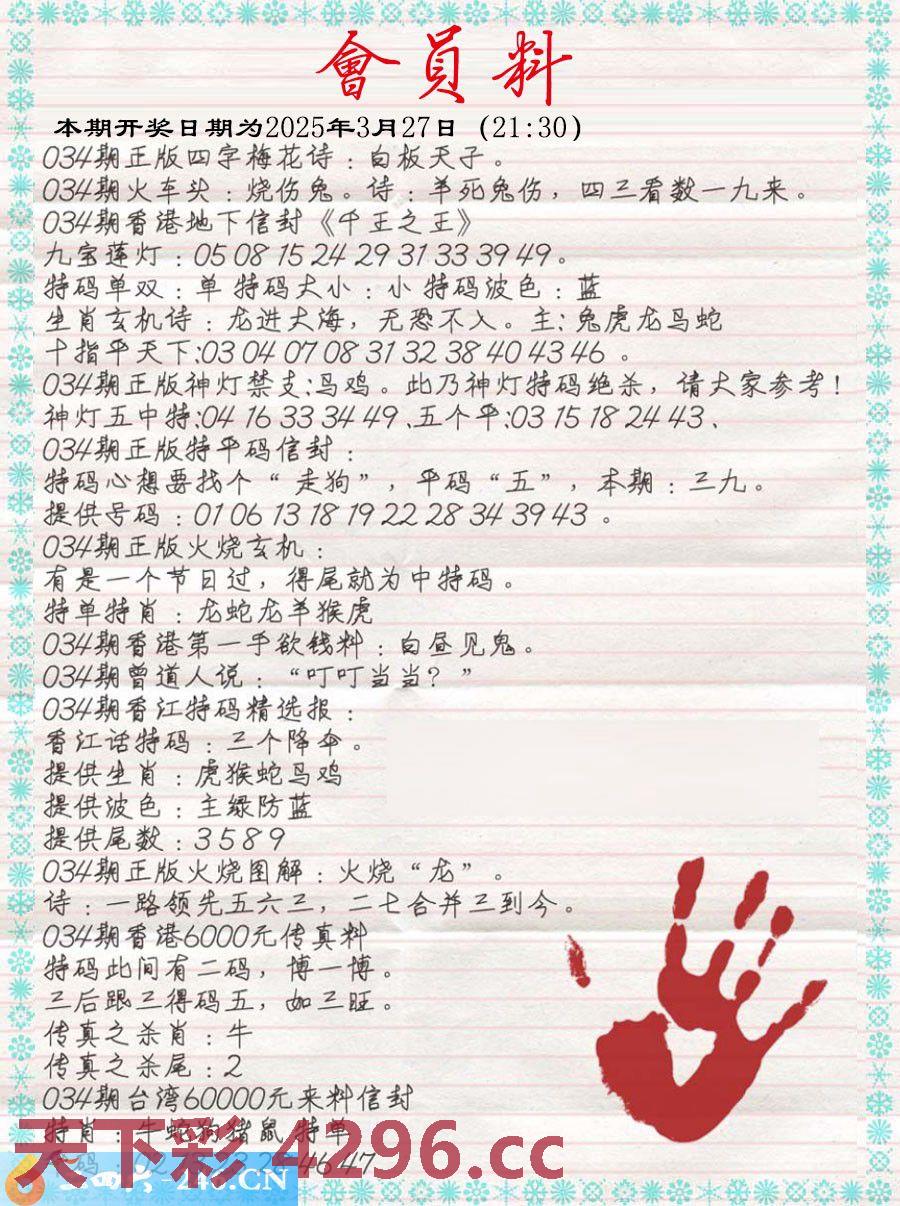 會員料
本期开奖日期为2025年3月27日（21:30）
034期正版四字梅花诗：白板天子。
034期火车头：烧伤兔。诗：羊死兔伤，四三看数一九来。
034期香港地下信封《千王之王》
九宝莲灯：05 08 15 24 29 31 33 39 49。
特码单双：单 特码大小：小 特码波色：蓝
生肖玄机诗：龙进大海，无恐不入。主:兔虎龙马蛇
十指平天下:03 04 07 08 31 32 38 40 43 46 。
034期正版神灯禁支:马鸡。此乃神灯特码绝杀，请大家参考！
神灯五中特:04 16 33 34 49 、五个平:03 15 18 24 43 、
034期正版特平码信封：
特码心想要找个“走狗”，平码“五”，本期：三九。
提供号码：01 06 13 18 19 22 28 34 39 43 。
034期正版火烧玄机：
有是一个节日过，得尾就为中特码。
特单特肖：龙蛇龙羊猴虎
034期香港第一手欲钱料：白昼见鬼。
034期曾道人说：“叮叮当当？”
034期香江特码精选报：
香江话特码：三个降伞。
提供生肖：虎猴蛇马鸡
提供波色：主绿防蓝
提供尾数：3 5 8 9
034期正版火烧图解：火烧“龙”。
诗：一路领先五六三，二七合并三到今。
034期香港6000元传真料
特码此间有二码，博一博。
三后跟三得码五，如三旺。
传真之杀肖：牛
传真之杀尾：2
034期台湾60000元来料信封
特肖：牛蛇狗猪鼠 特单
天下彩 4296.cc
46 47
246.CN